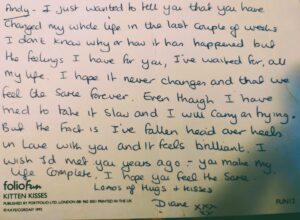 Andy - I just wanted to tell you that you have
changed my whole life in the last couple of weeks
I don't know why or how it has happened but
the feelings I have for you, I've waited for, all
my life. I hope it never changes and that we
feel the same forever. Even though I have
tried to take it slow and I will carry on trying.
But the fact is I've fallen head over heels
in Love with you and it feels brilliant. I
wish I'd met you years ago - you make my
life complete. I hope you feel the same.
Lots of Hugs + Kisses
Diane xxx
foliofun
KITTEN KISSES
PUBLISHED BY PORTFOLIO LTD, LONDON
PRINTED IN THE UK